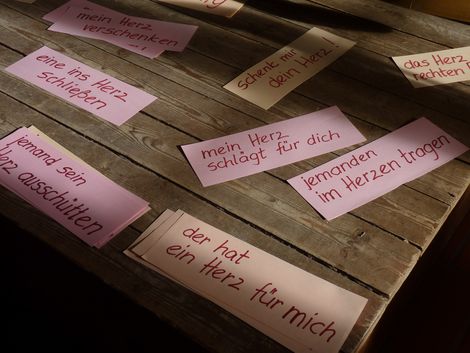 mein Herz
verschenken
schenk mir
dein Herz!
das Herz
rechten
eine ins Herz
schließen
mein Herz
schlägt für dich
jemanden
im Herzen tragen
jemand sein
Herz ausschütten
der hat
ein Herz für mich